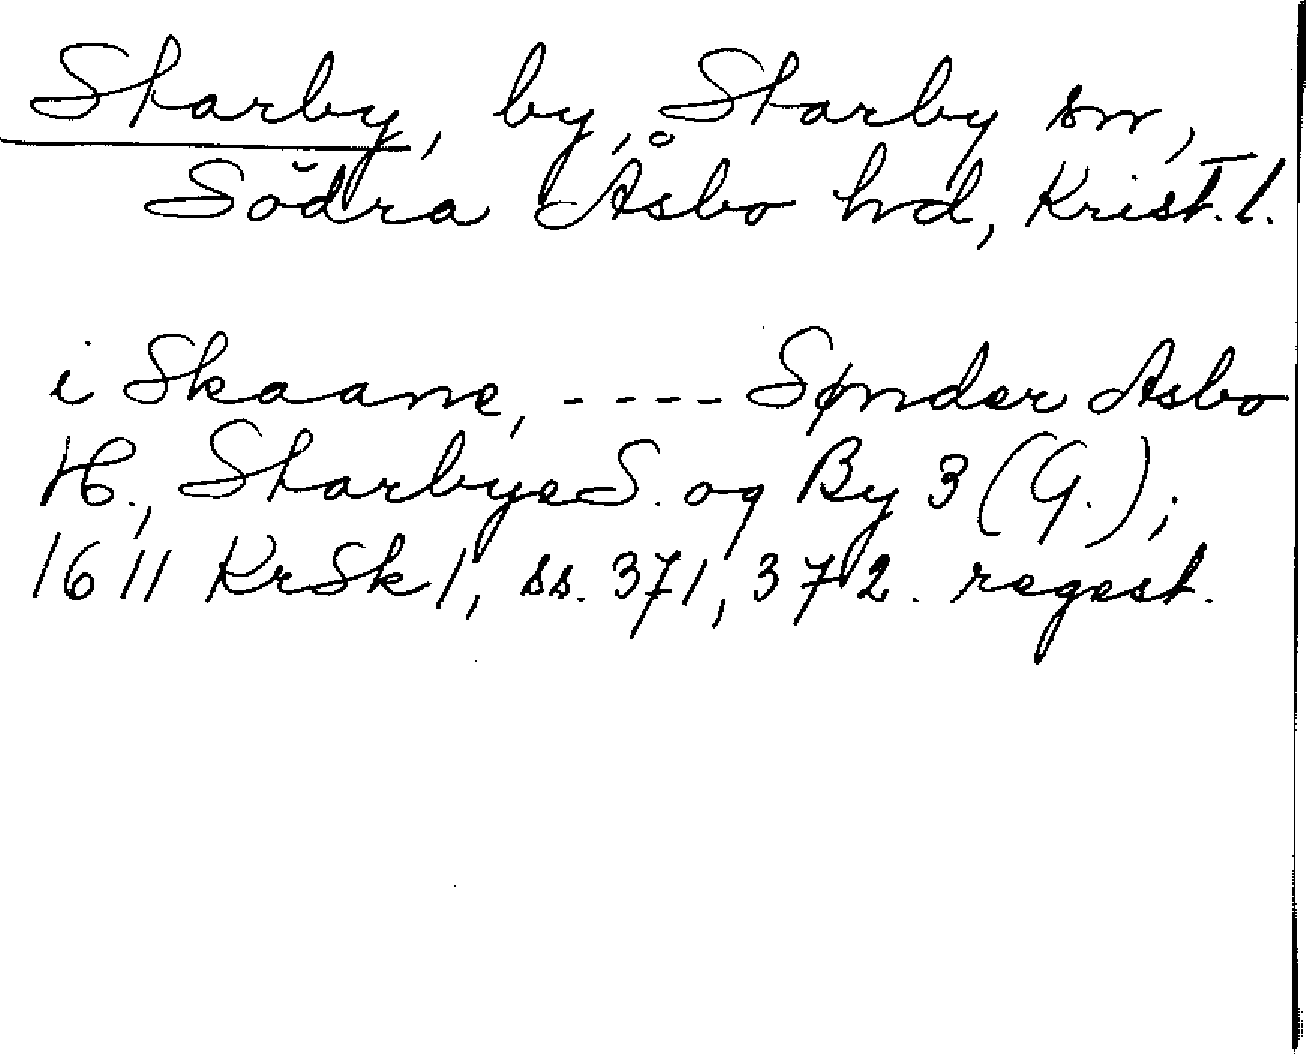 Starby, by, Starby sn,
Södra Åsbo hd, Krist. l.
i Skaane, ---- Sønder Asbo
H., Starbye S. og By 3 (G.);
1611 KrSk 1, ss. 371, 372. regest.